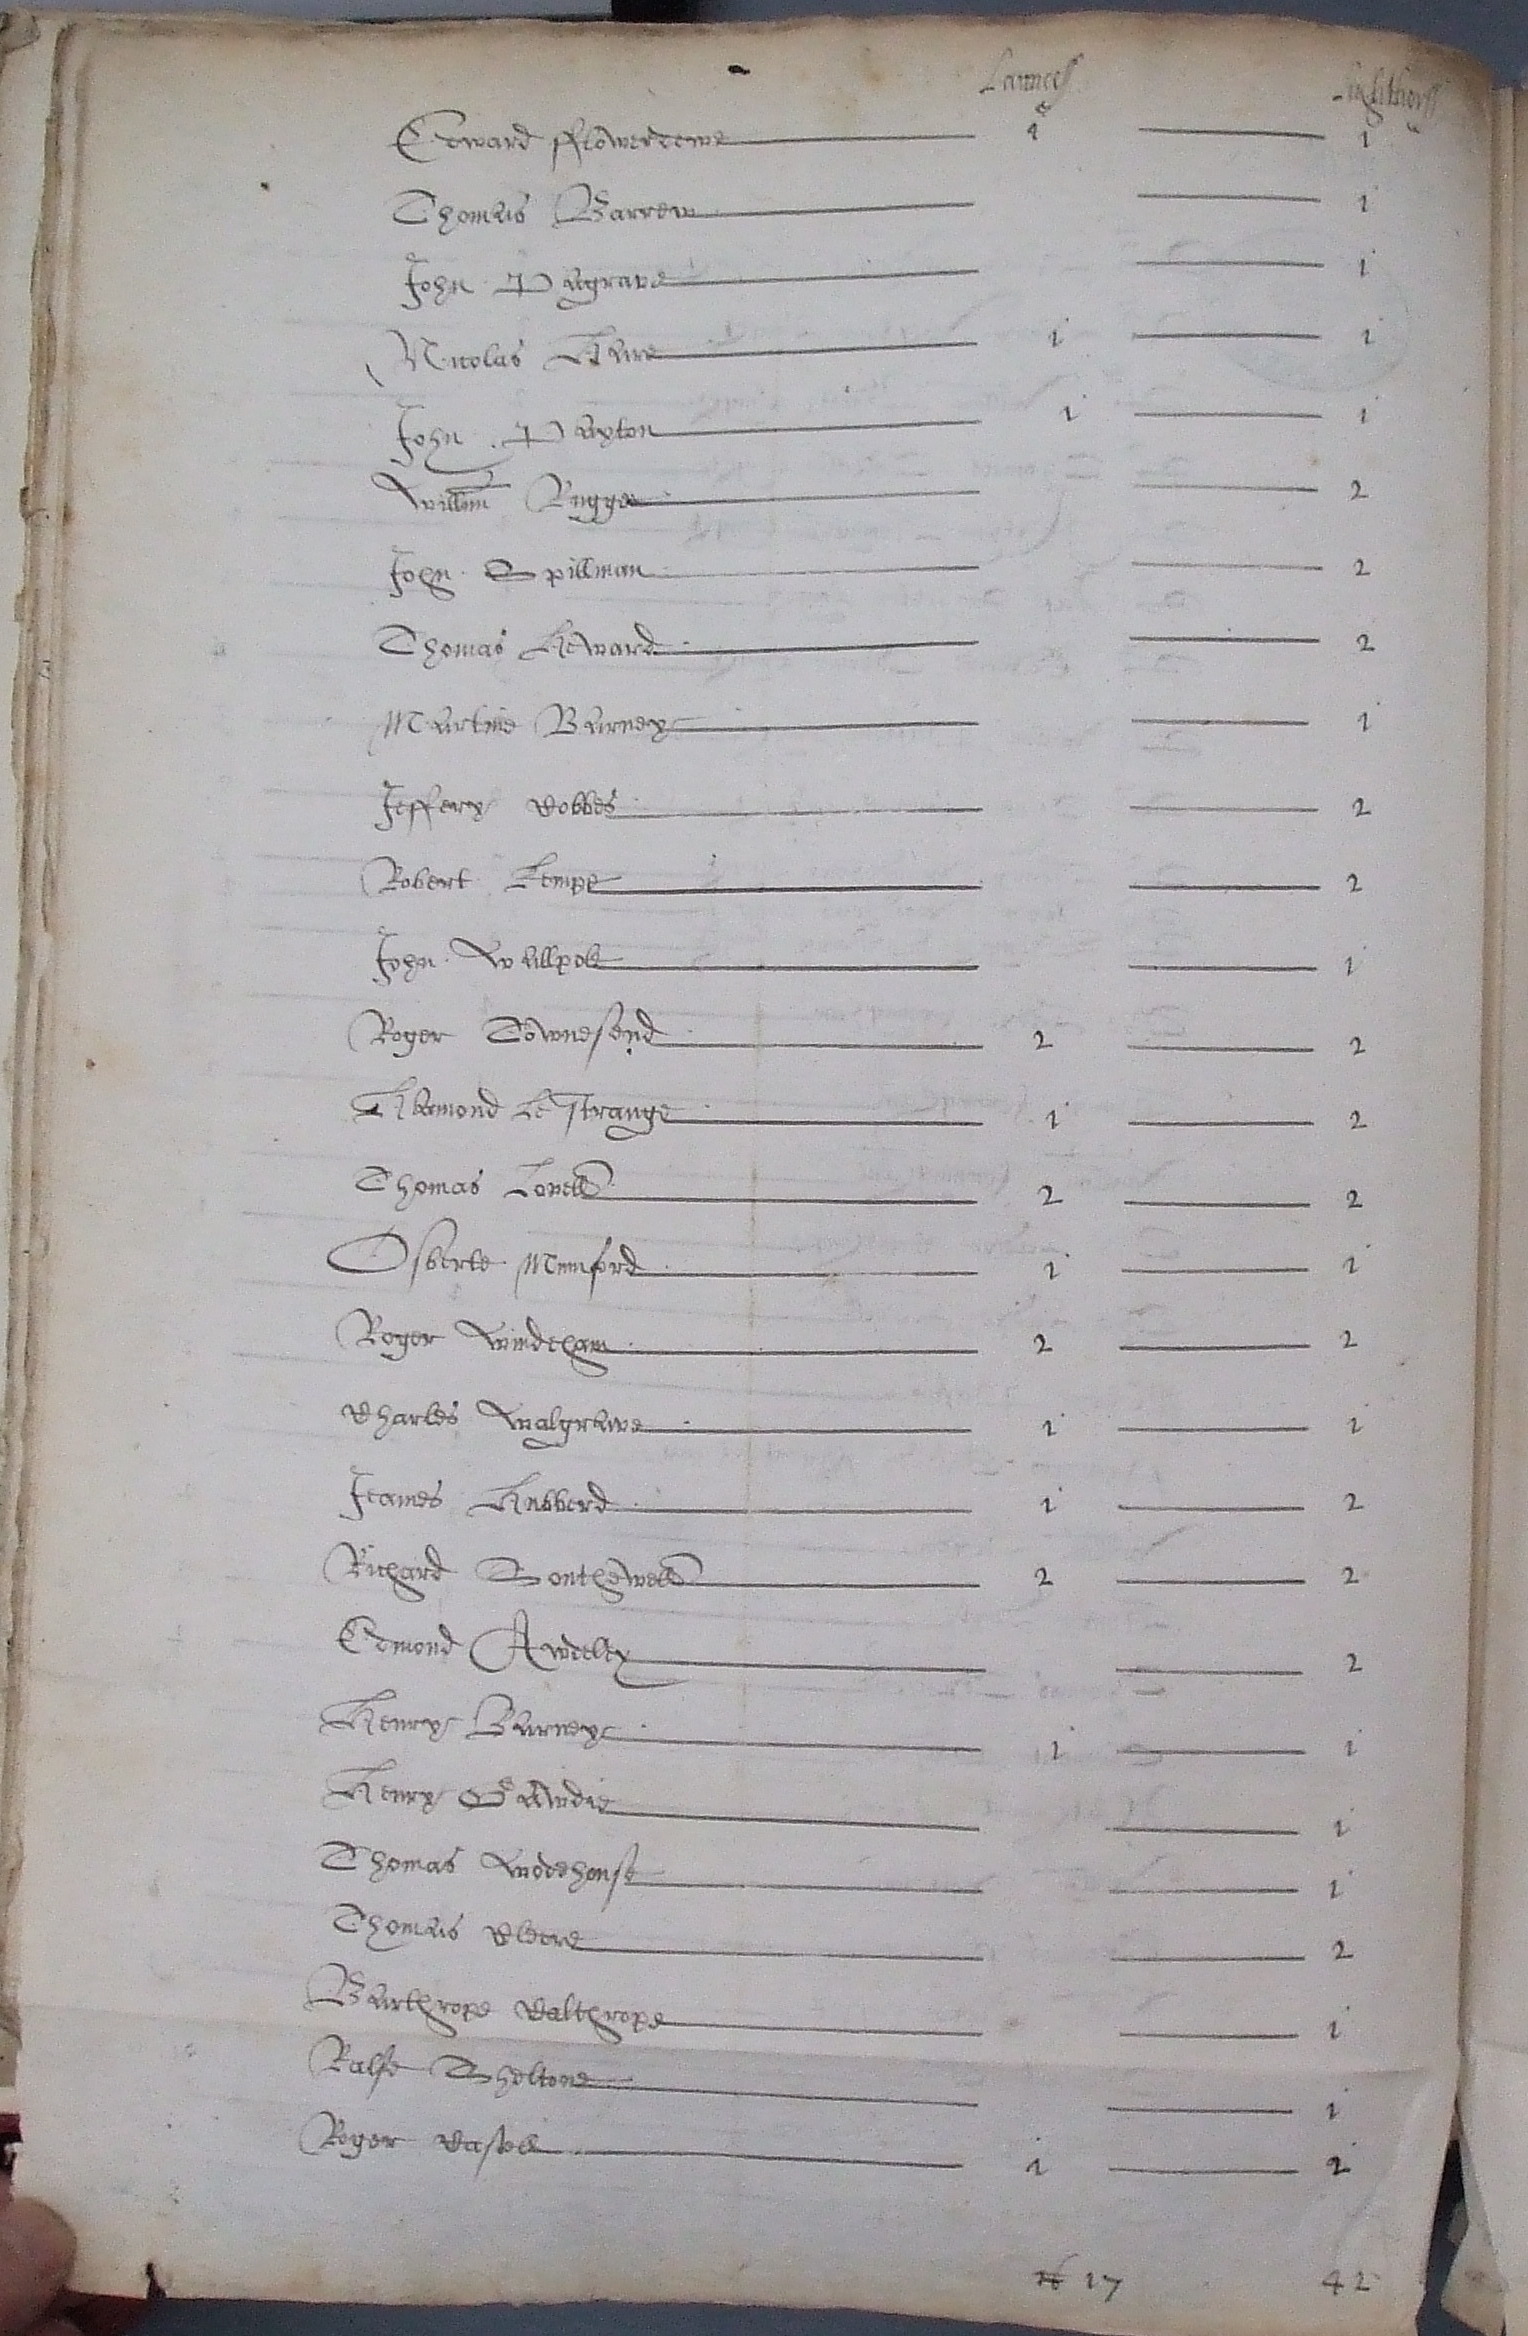 Launces Lighthors
Edward fflowerdewe 1 1
Thomas Barrow 1
John Pagrave 1
Nicolas Hare 1 1
John Paxton 1 1
Willm Rugge 2
John Spillman 2
Thomas Heward 2
Martine Barney 1
Jeffery Cobbes 2
Robert Kempe 2
John Wallpole 1
Roger Townesend 2 2
Hamond Le Strange 1 2
Thomas Lovell 2 2
Osberte Mumford 1 1
Roger Windeham 2 2
Charles Walgrave 1 1
Jeames Hubberd 1 2
Richard Southewell 2 2
Edmond Awdeley 2
Henry Barney 1 1
Henry Gawdie 1
Thomas Wodehouse 1
Thomas Clere 2
Barthrope Calthrope 1
Ralfe Sheltone 1
Roger Castell 1 2
17 42